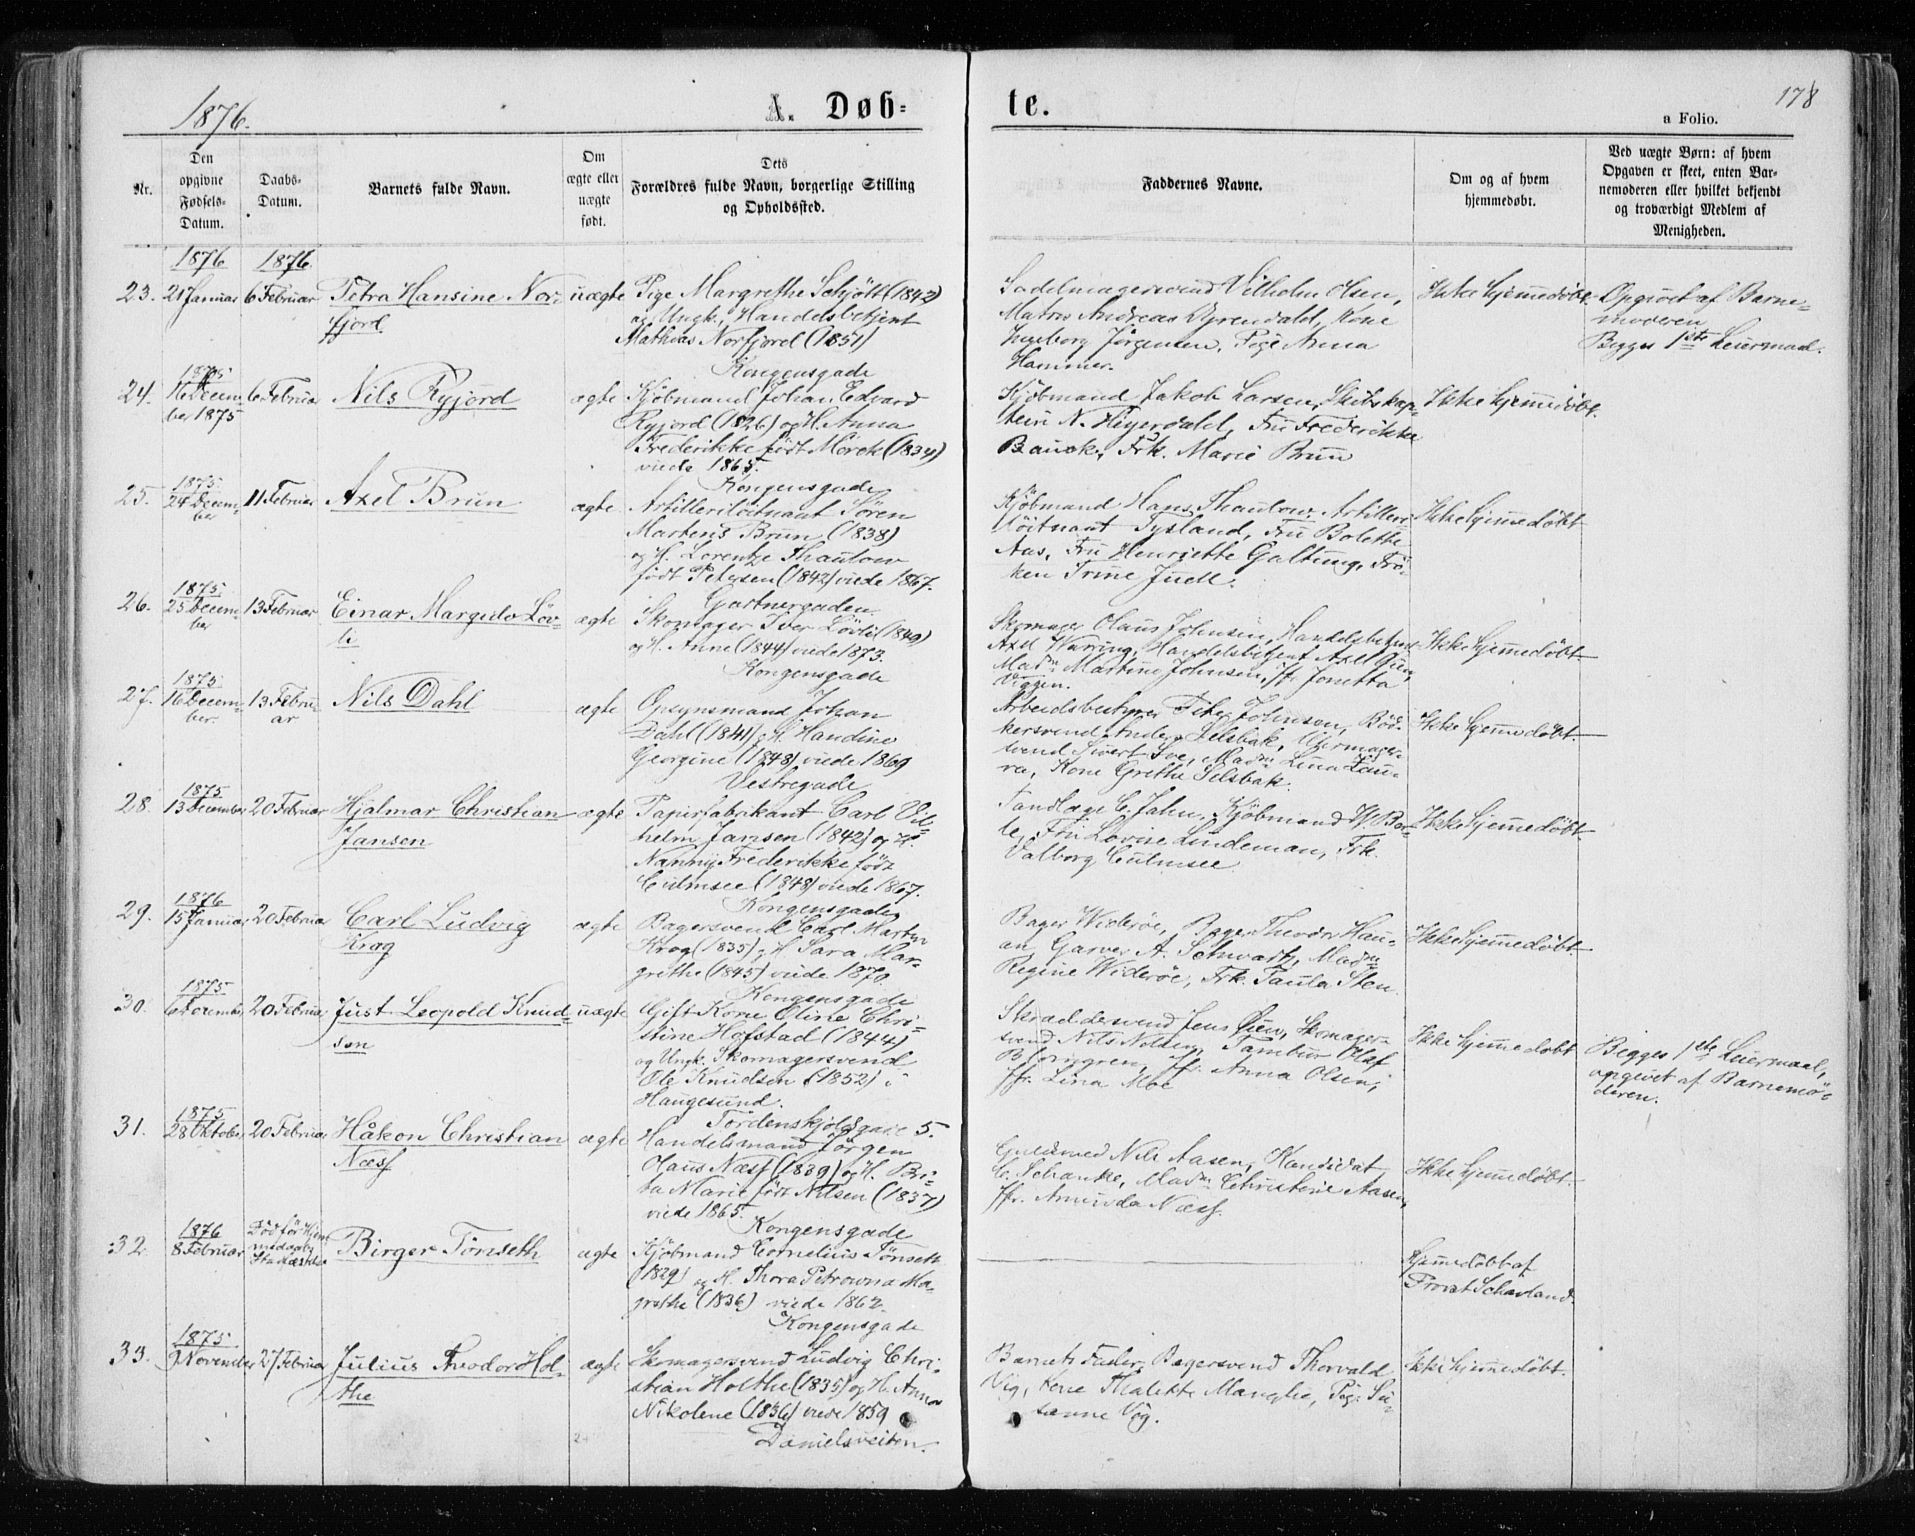 1876.
A. Døb-
te.
178
a Folio.
Nr.
Den opgivne Fødsels-Datum.
Daabs-Datum.
Barnets fulde Navn.
Om ægte eller uægte født.
Dets Forældres fulde Navn, borgerlige Stilling og Opholdssted.
Faddernes Navne.
Om og af hvem hjemmedøbt.
Ved uægte Børn: af hvem Opgaven er skeet, enten Barnemoderen eller hvilket bekjendt og troværdigt Medlem af Menigheden.
1876 1876.
23. 21 Januar 6 Februar Petra Hansine Nor-
fjord
uægte
Pige Margrethe Schjøtt (1842)
og Ungk., Handelsbetjent
Mathias Norfjord (1851)
Kongensgade
Sadelmagersvend Vilhelm Olsen,
Matros Andreas Dyrendald, Kone
Ingeborg Jørgensen, Pige Anna
Hammer.
Ikke hjemmedøbt.
Opgivet af Barne-
moderen
Begges 1ste Leiermaal.
24. 1875 16 Decem-
ber 1875
6 Februa
Nils Ryjord
ægte
Kjøbmand Johan Edvard
Ryjord (1826) og H. Anna
Frederikke født Mørch (1834)
viede 1865.
Kongensgade
Kjøbmand Jakob Larsen, Skibskap-
tein N. Heyerdahl, Fru Frederikke
Bauck, Frk. Marie Brun
Ikke hjemmedøbt.
25. 1875 24 Decem-
ber
11 Februar
Axel Brun
ægte
Artilleriløitnant Søren
Martens Brun (1838)
og H. Lorentze Thaulow
født Petersen (1842) viede 1867.
Gartnergaden
Kjøbmand Hans Thaulow. Artilleri-
løitnant Tysland, Fru Bolethe
Aas, Fru Henriette Galtung, Frø-
ken Trine Juell.
Ikke hjemmedøbt
26. 1875 25 Decem-
ber
13 Februar
Einar Margido Løv-
li
ægte
Skomager Iver Løvli (1849)
og H. Anne (1844) viede 1873.
Kongensgade
Skomager Olaus Johnsen, Handelsbetjent
Axel Waring, Handelsbetjent Axel
Madm Martine Johnsen, Jfr. Jonetta
Viggen.
Ikke hjemmedøbt
27. 1875 16 Decem-
ber.
13 Febru-
ar
Nils Dahl
ægte
Opsynsmand Johan
Dahl (1841) og H. Handine
Georgine (1848) viede 1869
Vestregade
Arbeidsbestyrer Peter Johnsen, Bød-
kersvend Anders Selsbak, Uhrmager-
svend Sivert Sve, Madm Lina Lau-
ra, Kone Grethe Selsbak.
Ikke hjemmedøbt.
28. 1875 13 December 20 Februar
Hjalmar Christian
Jansen
ægte
Papirfabrikant Carl Vil-
helm Jansen (1842) og H.
Nanny Frederikke født
Culmsee (1848) viede 1867.
Kongensgade
Tandlæge C. Jahn, Kjøbmand W. Bor-
te, Fru Lovise Lindeman, Frk.
Valborg Culmsee
Ikke hjemmedøbt
29. 1876 15 Januar 20 Februar
Carl Ludvig
Krog
ægte
Bagersvend Carl Martin
Krog (1835) og H. Sara Mar-
grethe (1845) viede 1870
Kongensgade
Bager Widerøe, Bager Theodor Hau-
an Garver A. Schwartz, Madm
Regine Widerøe, Frk. Paula Sten.
Ikke hjemmedøbt.
30. 1875 20 Februar
Just Leopold Knud-
sen
uægte
Gift Kone Oline Chri-
stine Hofstad (1844)
og Ungk. Skomagersvend
Ole Knudsen (1852) i
Haugesund.
Tordenskjoldsgade 5.
Skræddersvend Jens Øien, Skomager-
svend Nils Nilsen, Tambur Olaf
Blomgren, Jfr. Anna Olsen,
Jfr. Lina Moe
Ikke hjemmedøbt
Begges 1ste Leiermaal,
opgivet af Barnemo-
deren.
31. 1875 28 Oktober 20 Februar
Håkon Christian
Næss
ægte
Handelsmand Jørgen
Olaus Næss (1839) og H. Bri-
ta Marie født Nilsen (1837)
viede 1865.
Kongensgade
Guldsmed Nils Aasen, Kandidat
C. Schanke, Madm Christine Aasen,
Jfr. Amunda Næss.
Ikke hjemmedøbt.
32 1876 8 Februar Død før
Birger Tønseth
ægte
Kjøbmand Cornelius Tønseth
(1829) og H. Thora Petrowna Ma-
grethe (1836) viede 1862
Kongensgade
Hjemmedøbt af
Provst Schavland.
33. 1875 9 November 27 Februar
Julius Theodor Hol-
the
ægte
Skomagersvend Ludvig Chri-
stian Holthe (1835) og H. Anna
Nikolene (1836) viede 1859
Danielsveiten.
Barnets Fader, Bagersvend Thorvald
Vig, Kone Thalekte Manglio, Pige Su-
sanne Vog.
Ikke hjemmedøbt.